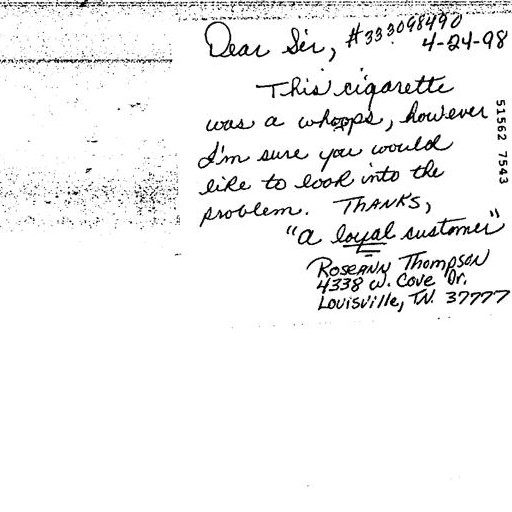 Dear Sir, #333098490
4-24-98
This cigarette
was a whoops, however
I'm sure you would
like to look into the
problem. THANKS,
"a loyal customer"
ROSEANN Thompson
4338 W. Cove Dr.
Louisville, TN. 37777
51562 7543